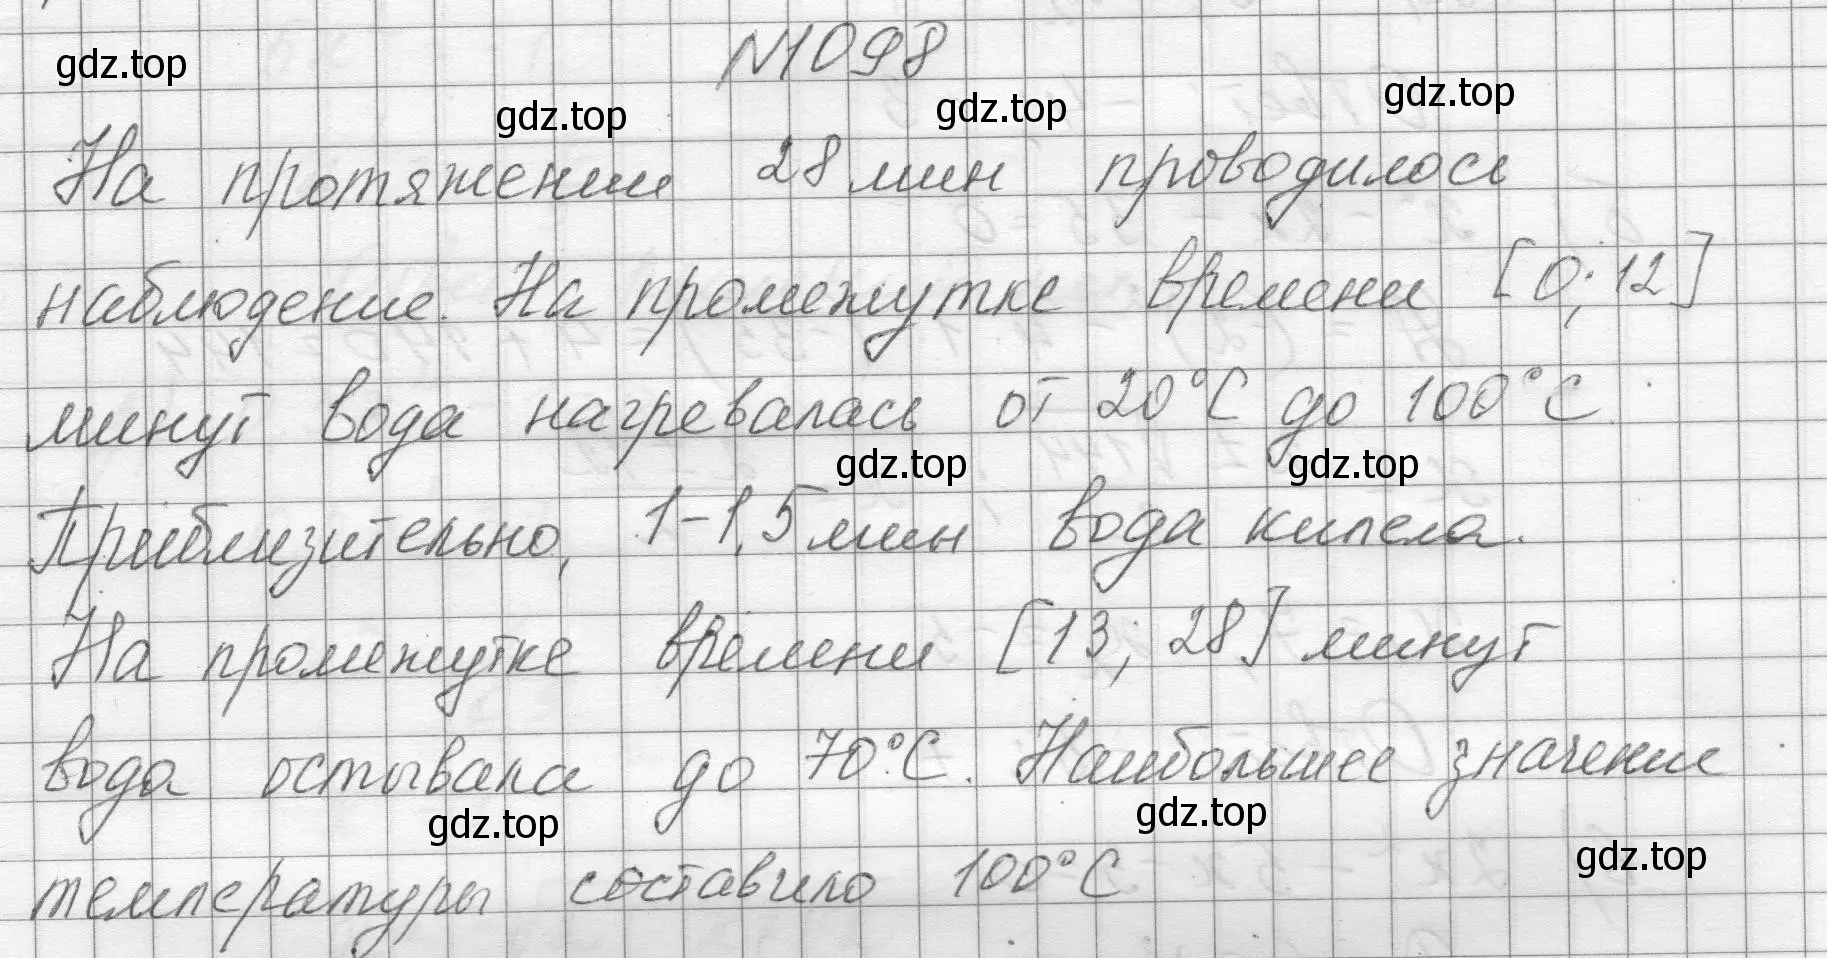 №1098
gdz.top
gdz.top
gdz.top
gdz.top
На протяжении 28 мин проводилось
наблюдение. На промежутке времени [0; 12]
минут вода нагревалась от 20°С до 100°С.
gdz.top
gdz.top
Приблизительно, 1-1,5 мин вода кипела.
На промежутке времени [13; 28] минут
вода остывала до 70°С. Наибольшее значение
gdz.top
gdz.top
gdz.top
температуры составило 100°С